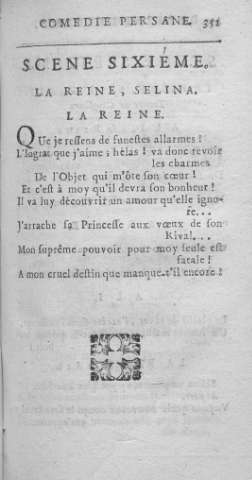 COMEDIE PERSANE. 351
SCENE SIXIÉME.
LA REINE, SELINA.
LA REINE.
QUe je ressens de funestes allarmes !
L'Ingrat que j'aime ; hélas ! va donc revoir
les charmes
De l'Objet qui m'ôte son cœur !
Et c'est à moy qu'il devra son bonheur !
Il va luy découvrir un amour qu'elle igno-
re...
J'arrache sa Princesse aux vœux de son
Rival...
Mon suprême pouvoir pour moy seule est
fatale !
A mon cruel destin que manque-t'il encore ?